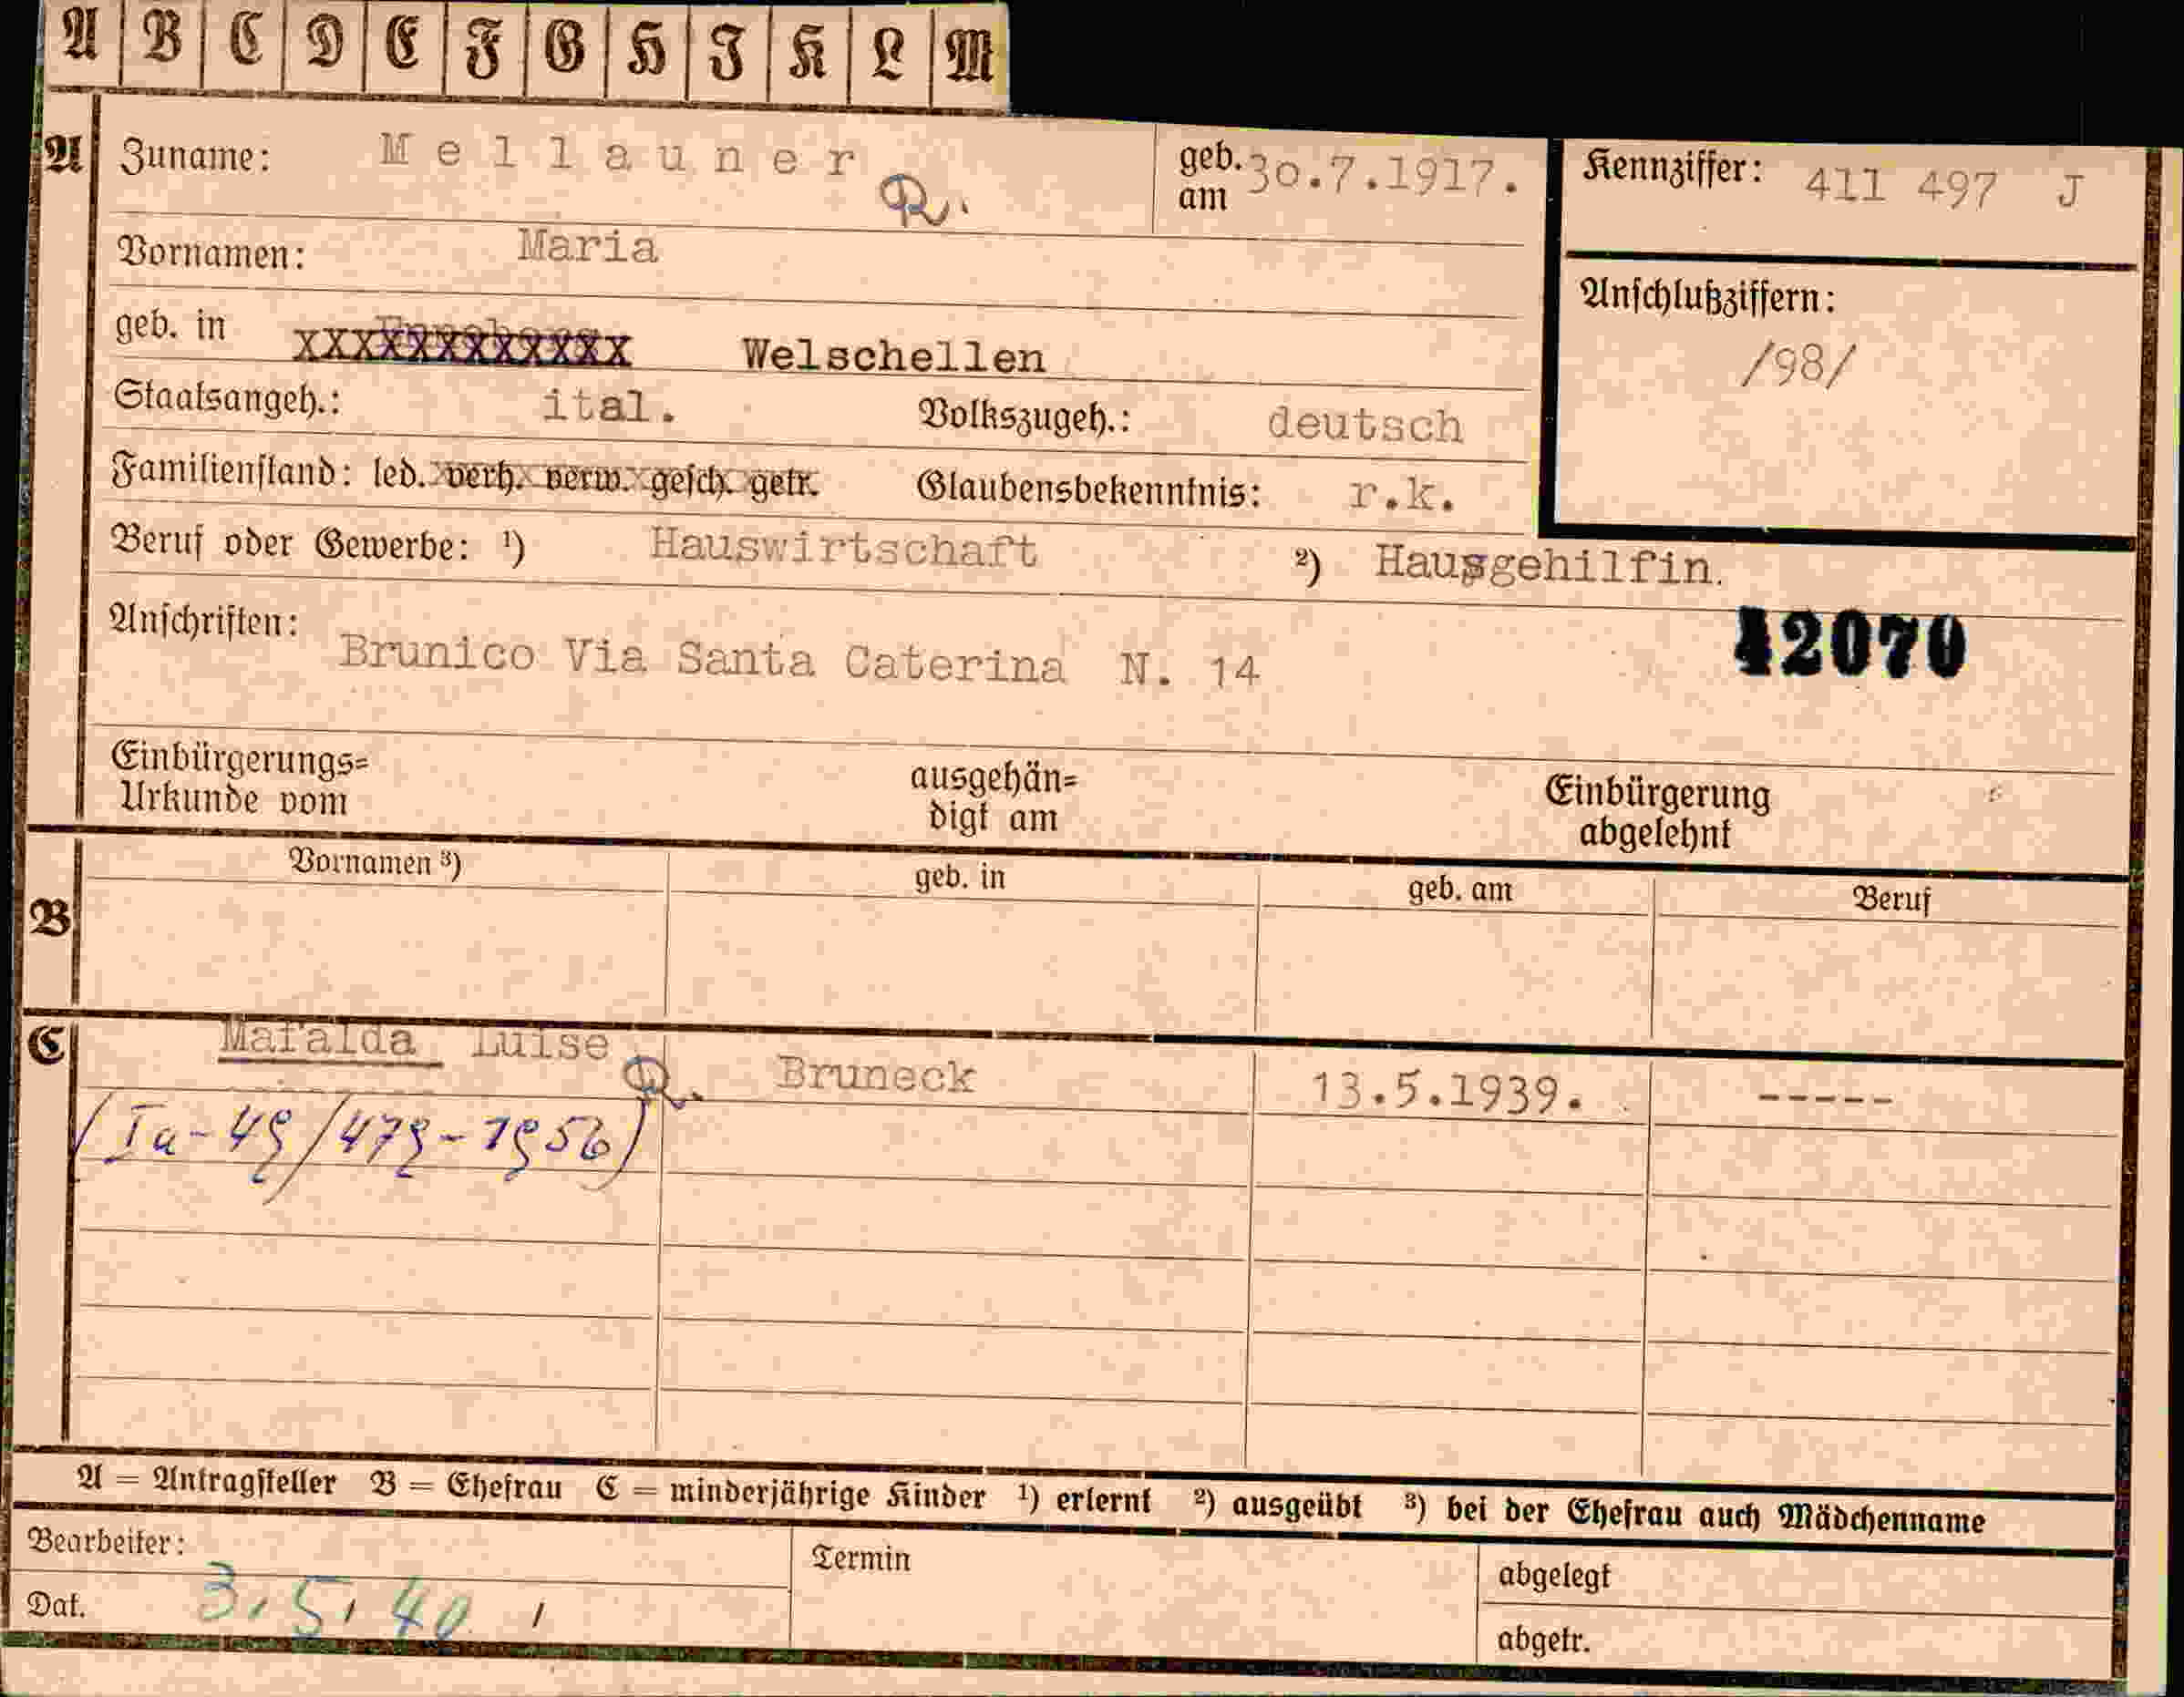 A B C D E F G H I K L M
A Zuname: Mellauner R. geb. am 30.7.1917. Kennziffer: 411 497 J
Vornamen: Maria
Anschlußziffern:
/98/
geb. in xxxxxxxxxxxx Welschellen
Staatsangeh.: ital. Volkszugeh.: deutsch
Familienstand: led. verh. verw. gesch. getr. Glaubensbekenntnis: r.k.
Beruf oder Gewerbe: ¹) Hauswirtschaft ²) Hausgehilfin.
Anschriften: Brunico Via Santa Caterina N. 14
42070
Einbürgerungs= Urkunde vom ausgehän= digt am Einbürgerung abgelehnt
B Vornamen ³) geb. in geb. am Beruf
C Mafalda Luise R. Bruneck 13.5.1939. -----
(Ia-49/479-1956)
A = Antragsteller B = Ehefrau C = minderjährige Kinder ¹) erlernt ²) ausgeübt ³) bei der Ehefrau auch Mädchenname
Bearbeiter: Termin abgelegt
Dat. 3.5.40 abgetr.